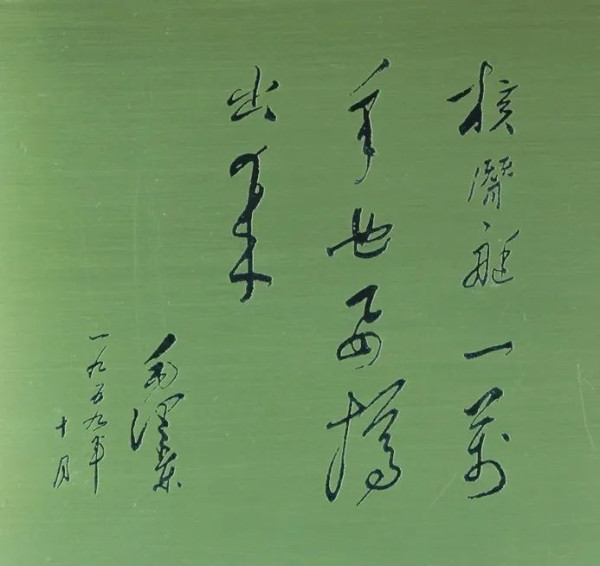 核潜艇一萬
年也要搞
出来
毛泽东
一九五九年
十月